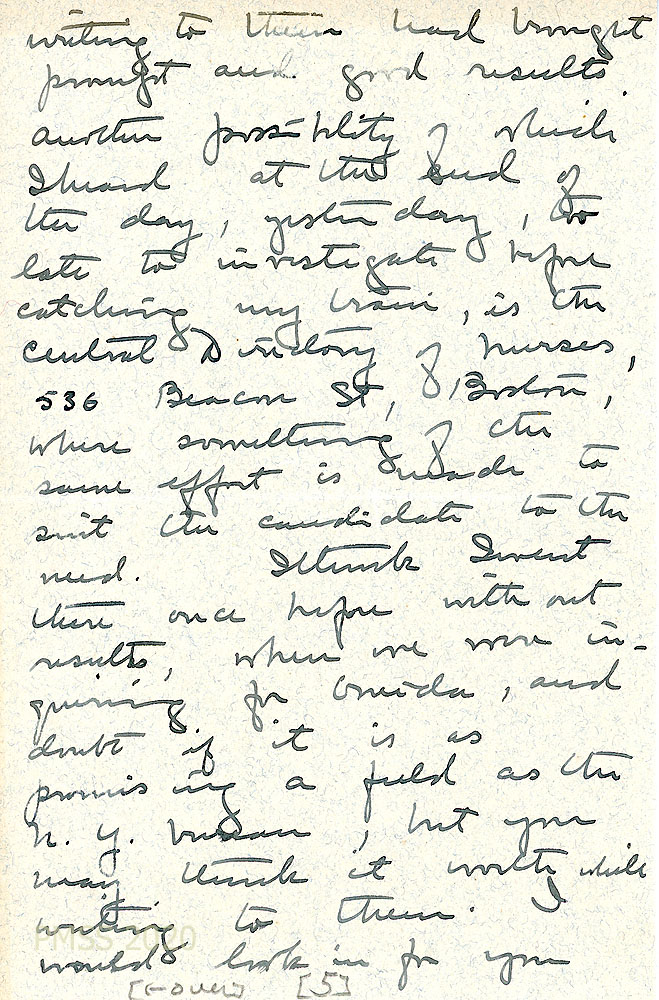 writing to them had brought
prompt and good results.
another possibility of which
I heard at the end of
the day, yesterday, too
late to investigate before
catching my train, is the
Central Directory of Nurses,
536 Beacon St, Boston,
where something of the
same effort is made to
suit the candidate to the
need. I think I went
there once before without
results, when we were in-
quiring for Oneida, and
doubt if it is as
promising a field as the
N. Y. bureau, but you
may think it worth while
writing to them. I
would look in for you
PMSS 2020
[cover] [5]